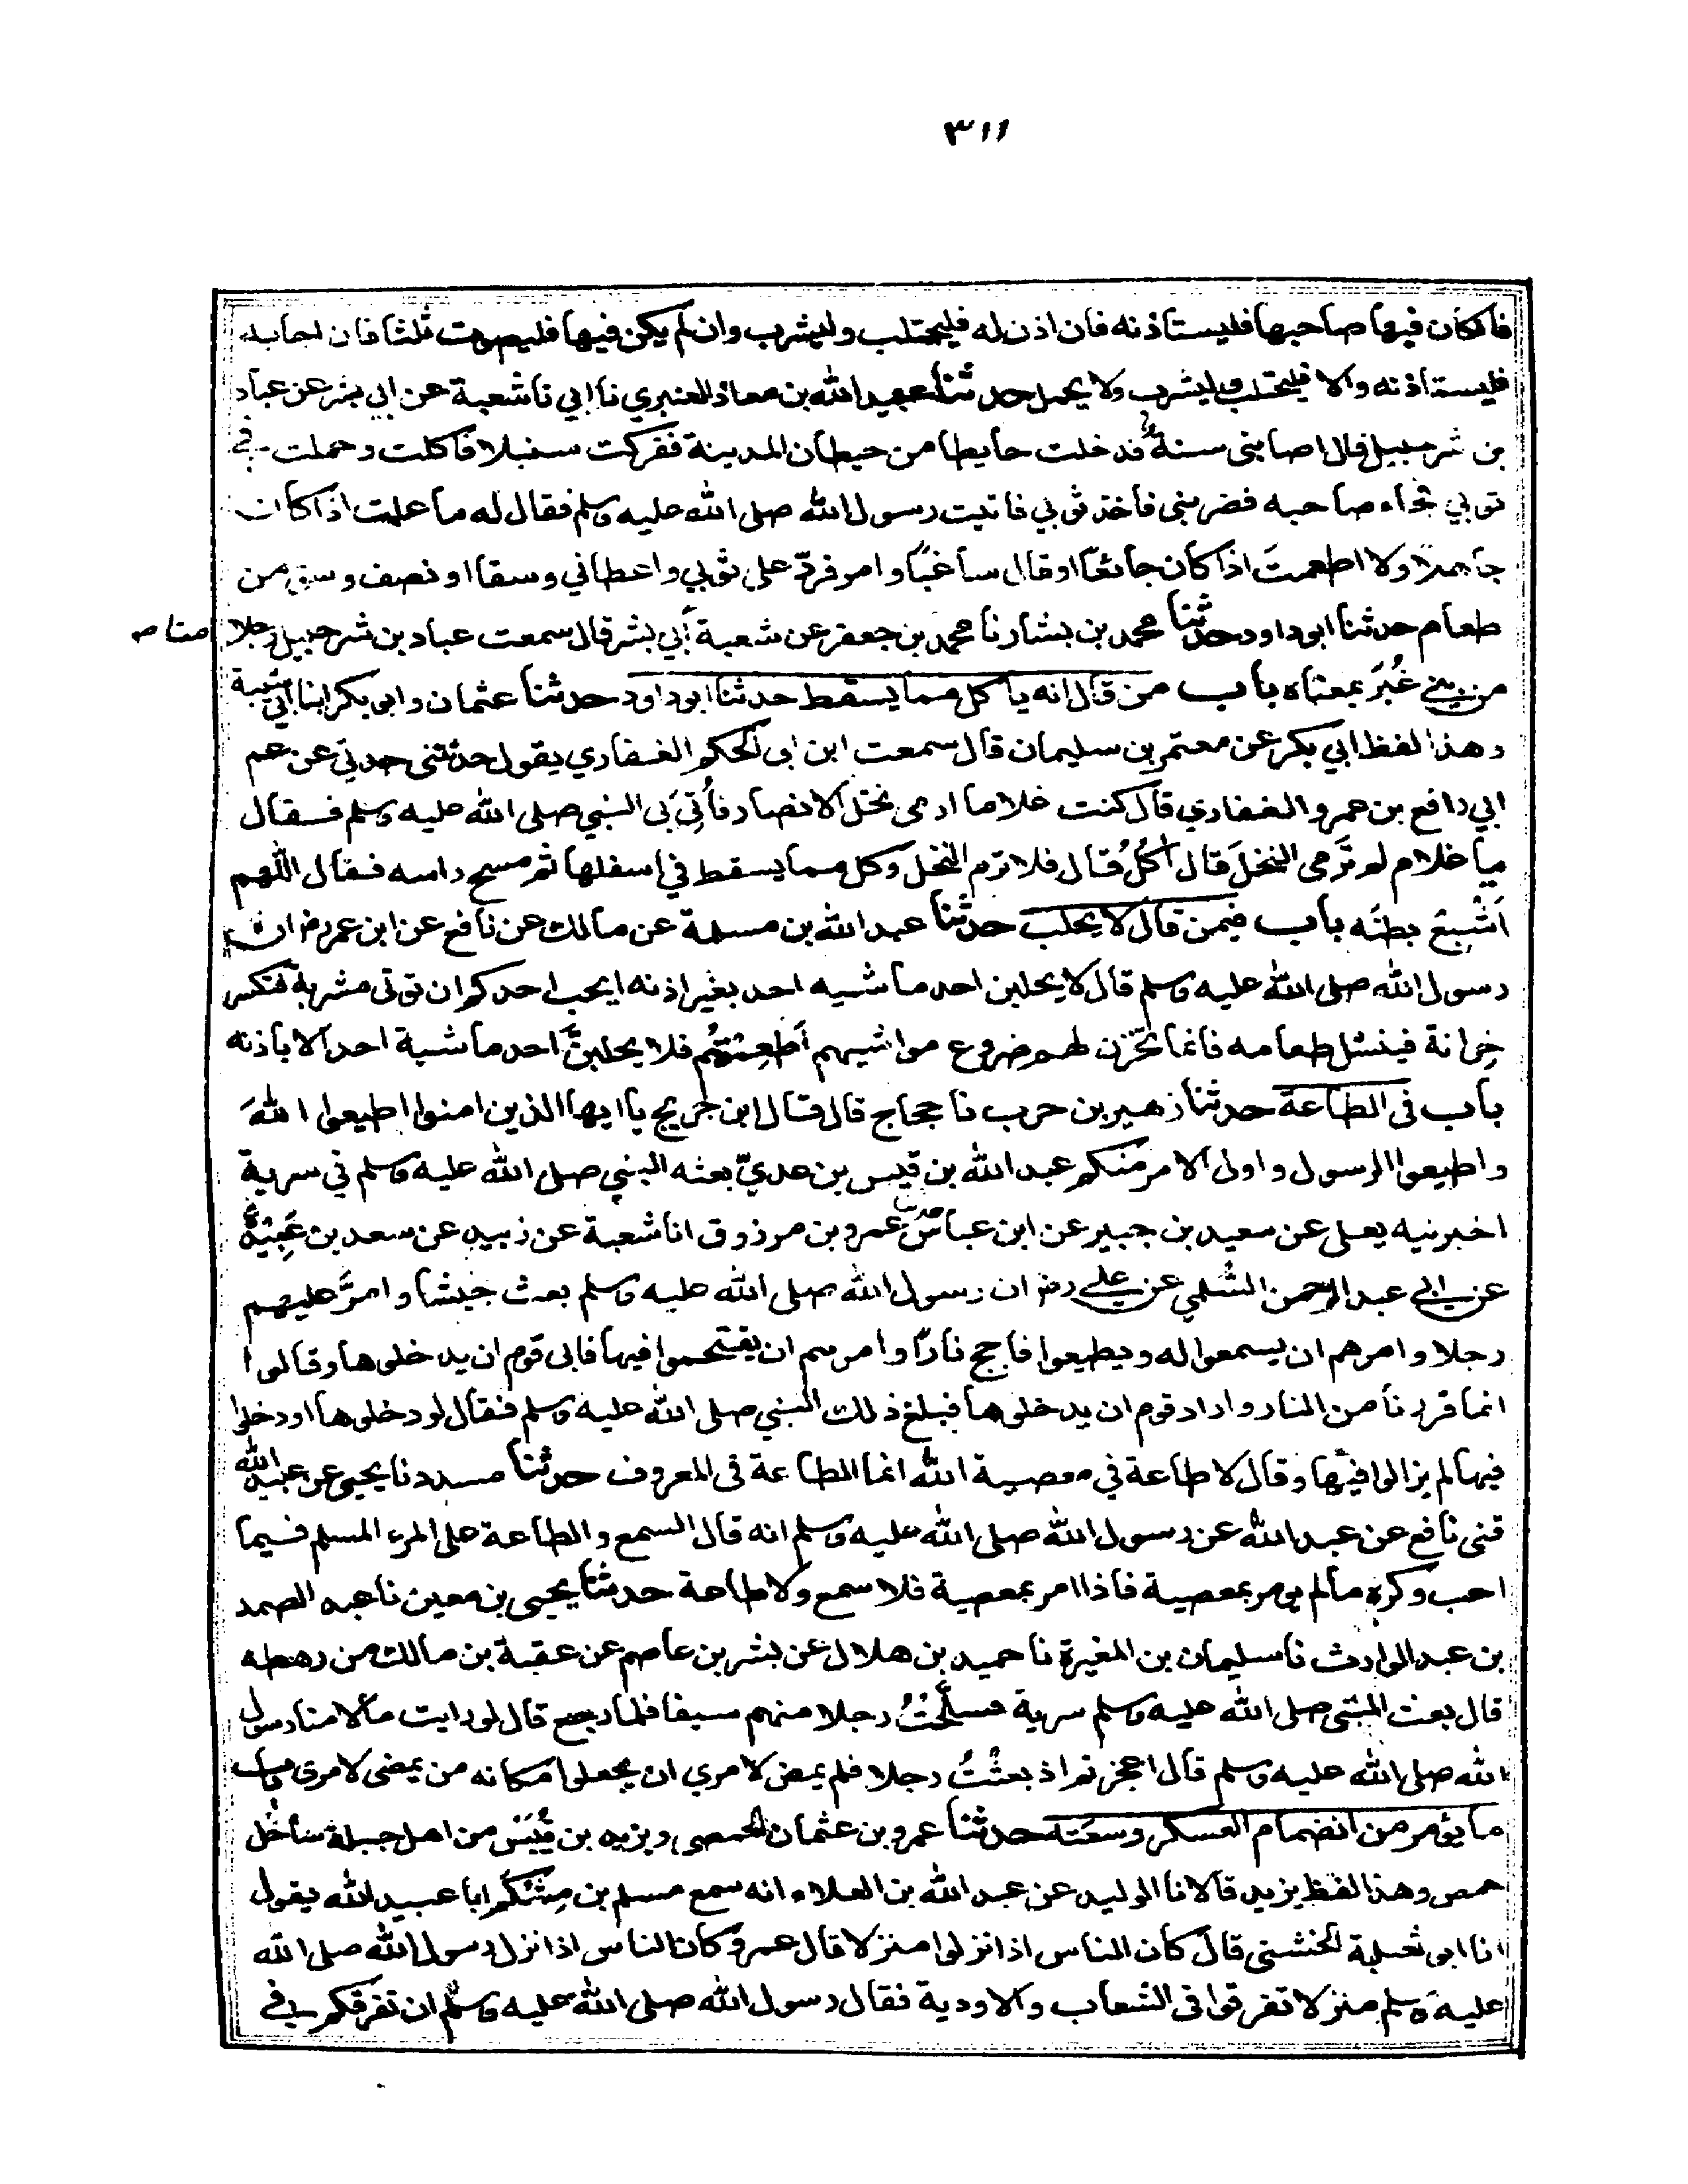 ٣١١
فان كان فيها صاحبها فليستاذنه فان اذن له فليحتلب وليشرب وان لم يكن فيها فليصوت ثلثا فان اجابه
فليستاذنه والا فليحتلب وليشرب ولا يحمل حدثنا عبيد الله بن معاذ العنبري نا ابي نا شعبة عن ابي بشر عن عباد
بن شرحبيل قال اصابتني سنة فدخلت حايطا من حيطان المدينة ففركت سنبلا فاكلت وحملت في
ثوبي فجاء صاحبه فضربني فاخذ ثوبي فاتيت رسول الله صلى الله عليه وسلم فقال له ما علمت اذا كان
جاهلا ولا اطعمتَ اذا كان جائعًا او قال ساغبًا وامر فردّ علي ثوبي واعطاني وسقا او نصف وسق من
طعام حدثنا ابو داود حدثنا محمد بن بشار نا محمد بن جعفر عن شعبة أبي بشر قال سمعت عباد بن شرحبيل رجلا منا
من بني غُبَرَ بمعناه باب من قال انه ياكل مما يسقط حدثنا ابو داود حدثنا عثمان وابو بكر ابنا ابي شيبة
وهذا لفظ ابي بكر عن معتمر بن سليمان قال سمعت ابن ابي الحكم الغفاري يقول حدثتني جدتي عن عم
ابي رافع بن عمرو الغفاري قال كنت غلاما ارمى نخل الانصار فأُتِيَ بى النبي صلى الله عليه وسلم فقال
يا غلام لم تَرمى النخلَ قال اٰكُلُ قال فلا ترم النخل وكل مما يسقط في اسفلها ثم مسح راسه فقال اللهم
اَشْبِعْ بطنَه باب فيمن قال لا يحلب حدثنا عبد الله بن مسلمة عن مالك عن نافع عن ابن عمر رض ان
رسول الله صلى الله عليه وسلم قال لا يحلبن احد ماشيه احد بغير اذنه ايحب احدكم ان توتى مشربة فتكسر
خِزانة فينتثل طعامه فانما تخزن لهم ضروع مواشيهم اَطعِمَتَهُم فلا يحلبنَّ احد ماشية احد الا باذنه
باب فى الطاعة حدثنا زهير بن حرب نا حجاج قال قال ابن جريج يا ايها الذين امنوا اطيعوا اللهَ
واطيعوا الرسول واولى الامر منكم عبد الله بن قيس بن عديّ بعثه النبي صلى الله عليه وسلم في سرية
اخبرنيه يعلى عن سعيد بن جبير عن ابن عباس حدثنا عمرو بن مرزوق انا شعبة عن زبيد عن سعد بن عُبَيْدَةَ
عن ابي عبد الرحمن السُّلمي عن علي رض ان رسول الله صلى الله عليه وسلم بعث جيشا وامَّر عليهم
رجلا وامرهم ان يسمعوا له ويطيعوا فاجج نارًا وامرهم ان يقتحموا فيها فابى قوم ان يدخلوها وقالوا
انما فررنا من النار واراد قوم ان يدخلوها فبلغ ذلك النبي صلى الله عليه وسلم فقال لو دخلوها او دخلوا
فيها لم يزالوا فيها وقال لا طاعة في معصية الله انما الطاعة فى المعروف حدثنا مسدد نا يحيى عن عبيد الله
ثنى نافع عن عبد الله عن رسول الله صلى الله عليه وسلم انه قال السمع والطاعة على المرء المسلم فيما
احب وكره مالم يومر بمعصية فاذا امر بمعصية فلا سمع ولا طاعة حدثنا يحيى بن معين نا عبد الصمد
بن عبد الوارث نا سليمان بن المغيرة نا حميد بن هلال عن بشر بن عاصم عن عقبة بن مالك من رهطه
قال بعث النبى صلى الله عليه وسلم سرية فسلّحْتُ رجلا منهم سيفا فلما رجع قال لو رايت ما لامنا رسول
الله صلى الله عليه وسلم قال اعجزتم اذ بعثْتُ رجلا فلم يمض لامري ان يجعلوا مكانه من يمضى لامرى باب
ما يؤمر من انضمام العسكر وسعته حدثنا عمرو بن عثمان الحمصى ويزيد بن قُبَيْس من اهل جبلة ساحل
حمص وهذا لفظ يزيد قالا نا الوليد عن عبد الله بن العلاء انه سمع مسلم بن مِشْكَم ابا عبيد الله يقول
انا ابو ثعلبة الخشنى قال كان الناس اذا نزلوا منزلا قال عمرو كان الناس اذا نزل رسول الله صلى الله
عليه وسلم منزلا تفرقوا فى الشعاب والاودية فقال رسول الله صلى الله عليه وسلم ان تفرقكم في